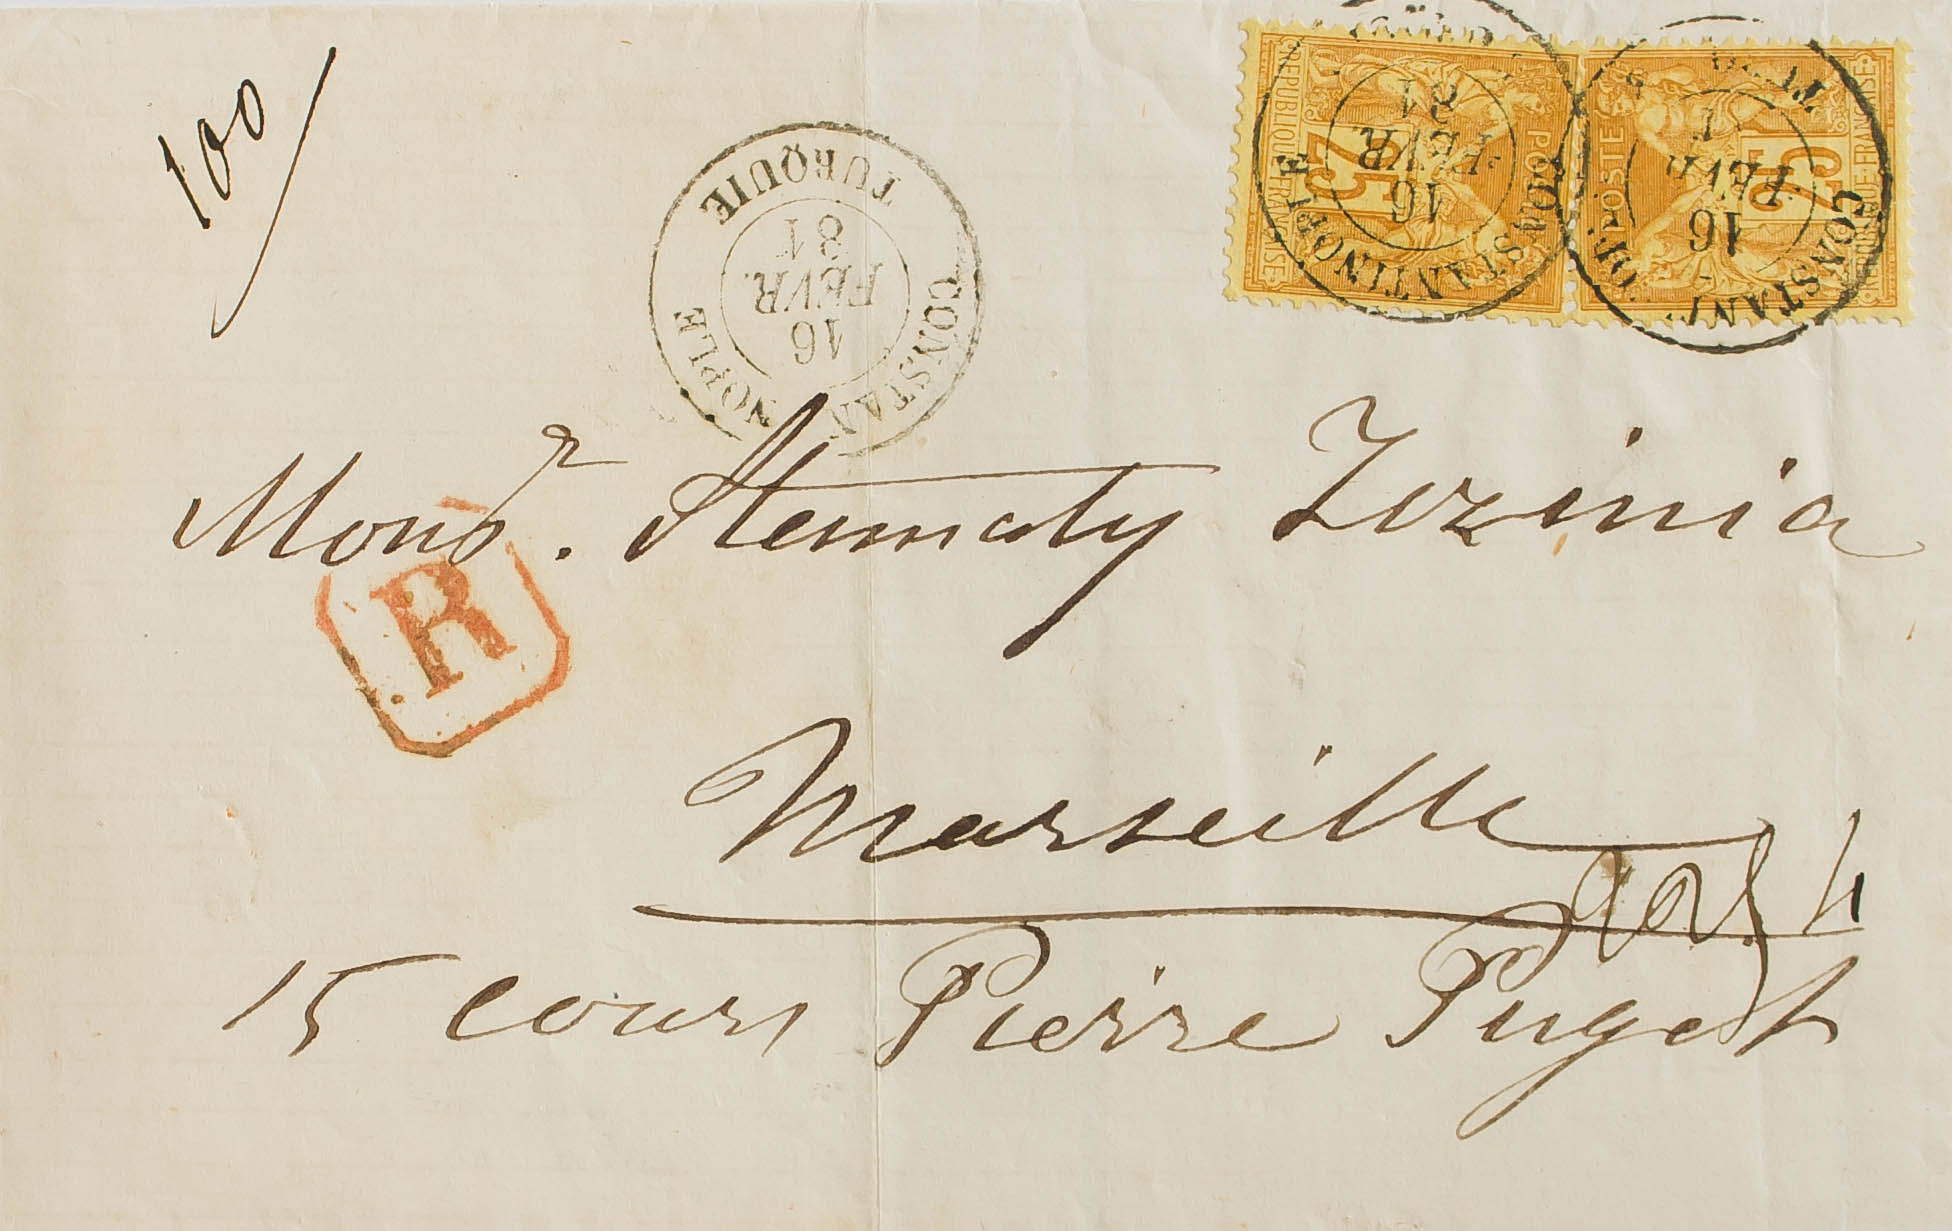 100
CONSTANTINOPLE TURQUIE
16
FEVR.
81
REPUBLIQUE FRANÇAISE
POSTE
25
CONSTANTINOPLE
16
FEVR
81
REPUBLIQUE FRANÇAISE
POSTE
25
CONSTANTINOPLE
16
FEVR
Monsr. Stamaty Zizinia
R
Marseille
15 Cours Pierre Puget